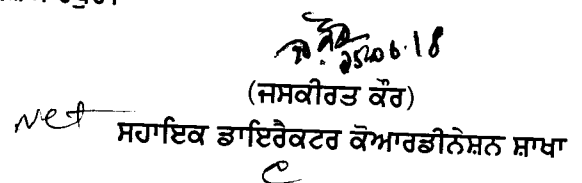 25.06.18
(ਜਸਕੀਰਤ ਕੌਰ)
ਸਹਾਇਕ ਡਾਇਰੈਕਟਰ ਕੋਆਰਡੀਨੇਸ਼ਨ ਸ਼ਾਖਾ